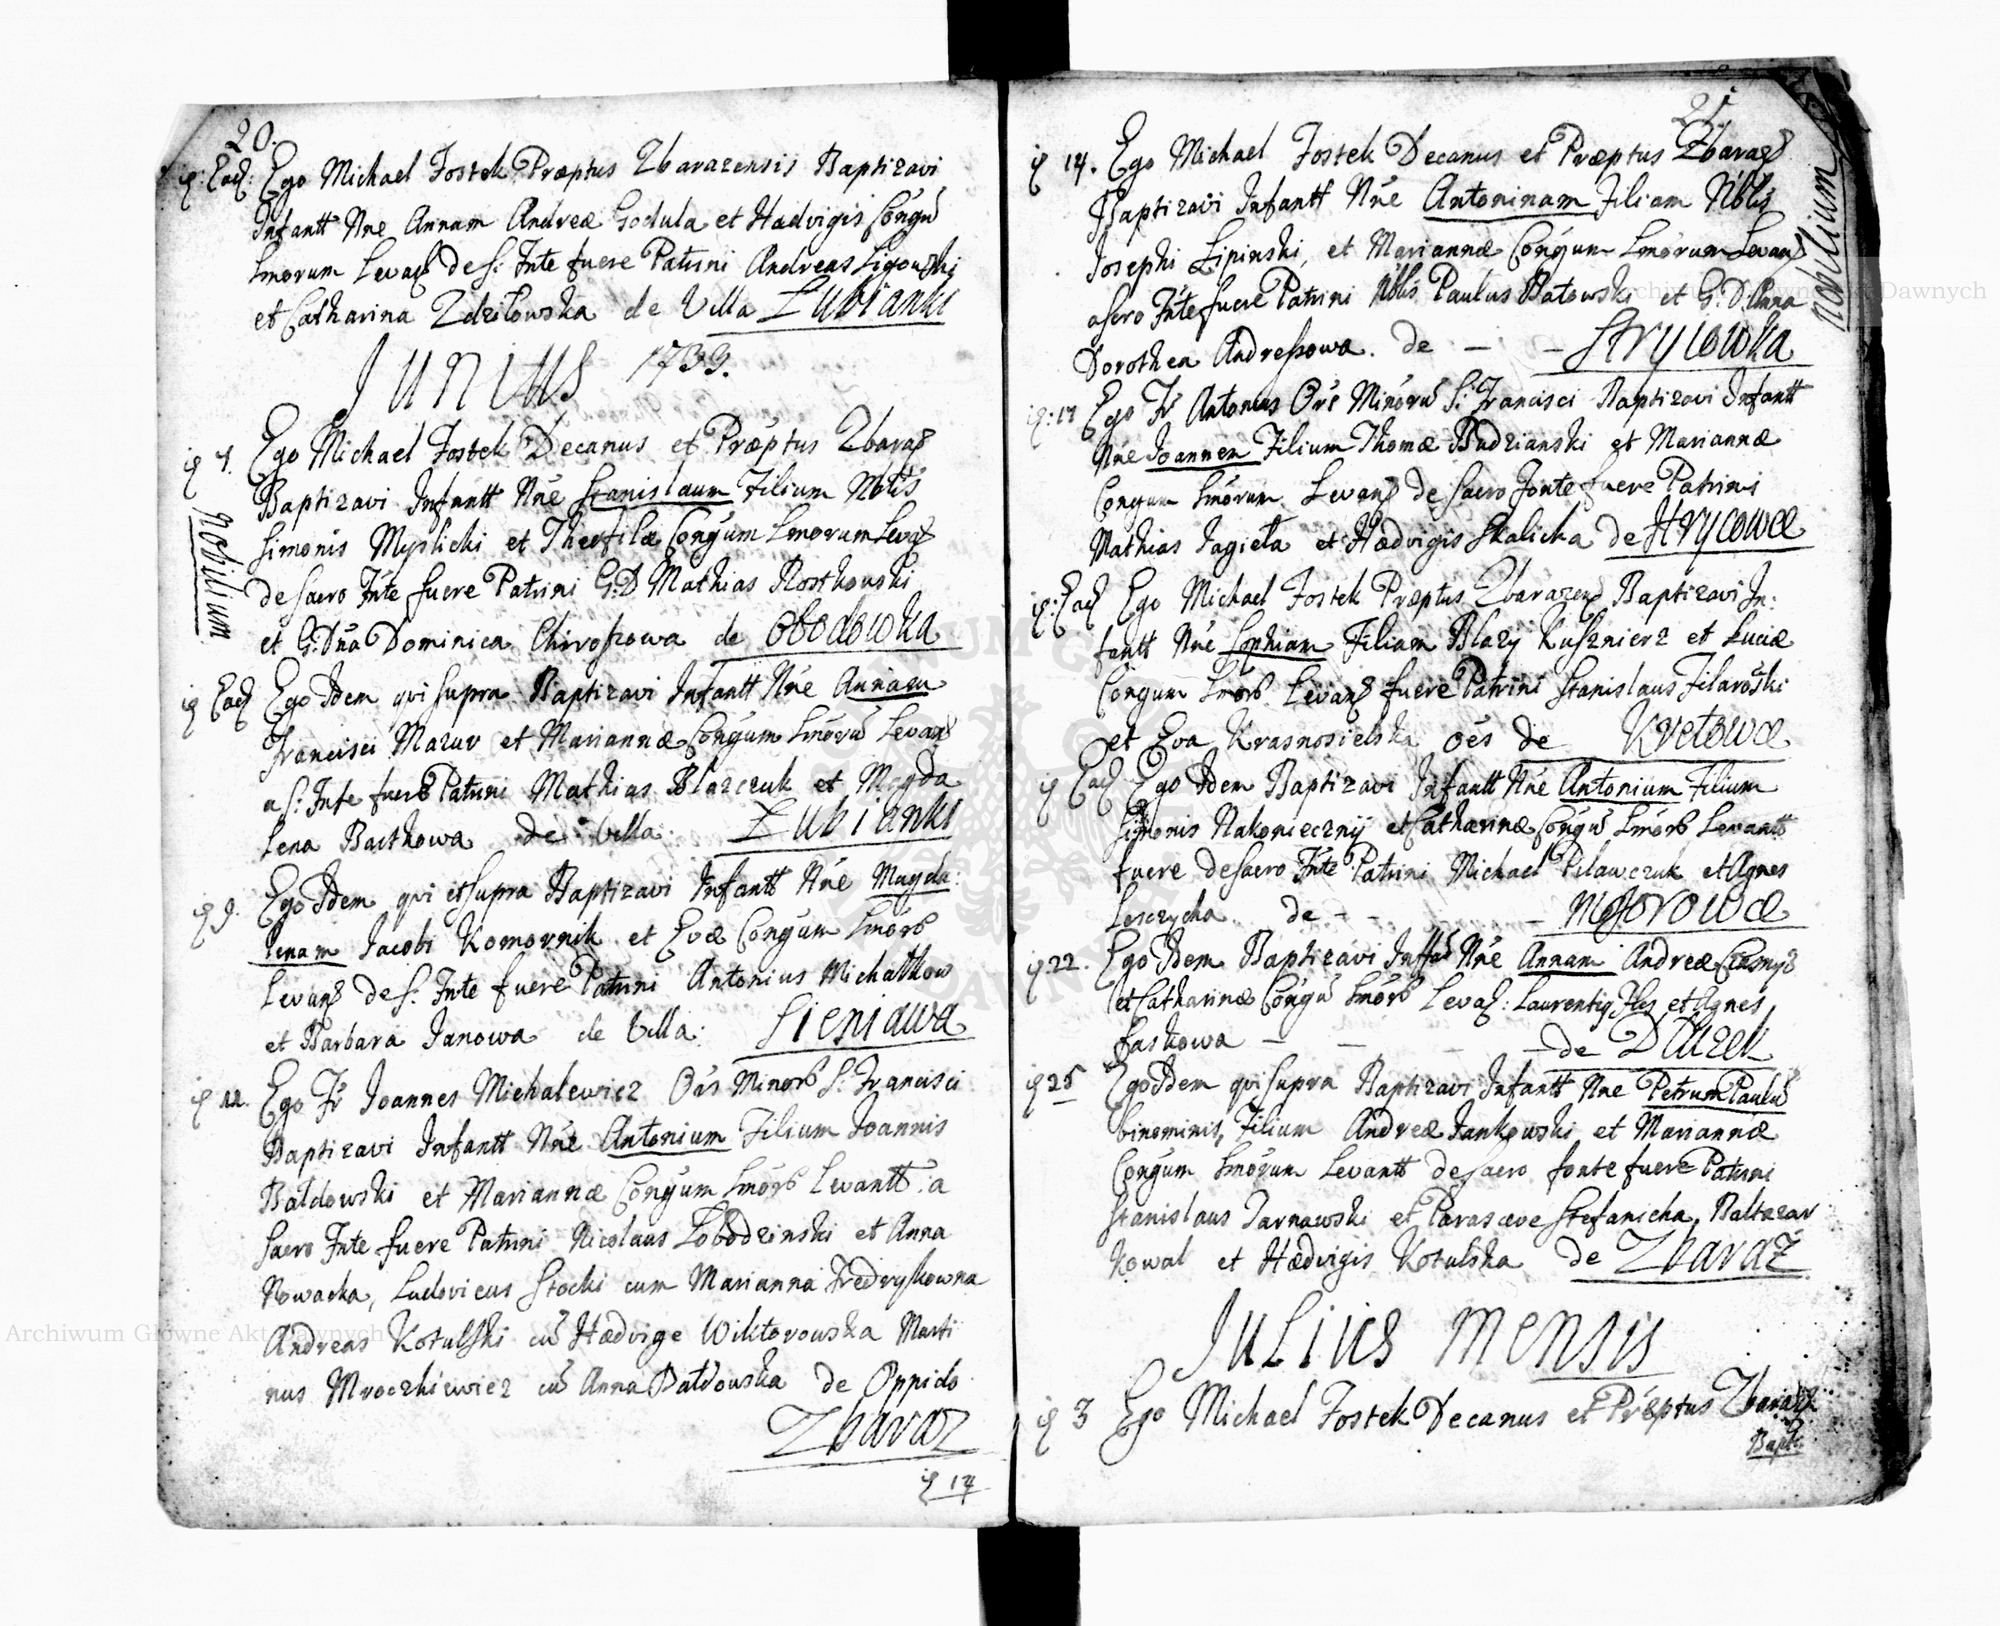 20.
Ead: Ego Michael Fostek Præptus Zbarazensis Baptizavi
Infantt Nne Annam Andreæ Godula et Hædvigis Congu
Lmorum Levan de S: Fnte fuere Patrini Andreas Ligowski
et Catharina Zdziłowska de Villa Łubianki
Junius 1739.
4. Ego Michael Fostek Decanus et Præptus Zbaraz
Nobilium
Baptizavi Infantt Nne Stanislaum Filium Nblis
Simonis Myslicki et Theofilæ Congum Lmorum Levan
de Sacro Fnte fuere Patrini G:D Mathias Rostkowski
et G:Dna Dominica de Obodowka
Ead Ego Idem qui supra Baptizavi Infantt Nne Annam
Francisci Mazur et Mariannæ Congum Lmoru Levan
a S: Fnte fuere Patrini Mathias Blazczuk et Magda
lena Bartkowa de Villa: Łubianki
9. Ego Idem qui et supra Baptizavi Infantt Nne Magda:
lenam Jacobi Komornik et Evæ Congum Lmor
Levan de S: Fnte fuere Patrini Antonius Michałkow
et Barbara Janowa de Villa: Sieniawa
12. Ego Fr Joannes Michalewicz Ors Minor S: Francisci
Baptizavi Infantt Nne Antonium Filium Joannis
Bałdowski et Mariannæ Congum Lmor Levantt a
Sacro Fnte fuere Patrini Nicolaus Łobodzinski et Anna
Nowacka, Ludovicus Stocki cum Marianna Fredryskowna
Andreas Kotulski cu Hædvige Wiktorowska Marti
nus Mroczkiewicz cu Anna Bałdowska de Oppido
Zbaraz
14
21
14. Ego Michael Fostek Decanus et Præptus Zbaraz
Nobilium
Baptizavi Infantt Nne Antoninam Filiam Nblis
Josephi Lipinski, et Mariannæ Congum Lmorum Levan
a Sero Fnte fuere Patrini Nblis Paulus Batowski et G:D: Anna
Dorothea Andreszowa. de — — Stryiowka
17 Ego Fr Antonius Ors Minoru S: Francisci Baptizavi Infantt
Nne Joannem Filium Thomæ Budzianski et Mariannæ
Congum Lmorum Levan de Sacro Fonte fuere Patrini
Mathias Jagieła et Hædvigis Skalicka de Hrycowce
Ead Ego Michael Fostek Præptus Zbarazen Baptizavi In:
fantt Nne Sophiam Filiam Blazy Kusznierz et Luciæ
Congum Lmor Levan fuere Patrini Stanislaus Filarowski
et Eva Krasnosielska oes de Kretowce
Ead Ego Idem Baptizavi Infantt Nne Antonium Filium
Simonis Nakonieczny et Catharinæ Congu Lmor Levantt
fuere de Sacro Fnte Patrini Michael Pilawczuk et Agnes
Lesczycha de - - - Insorowce
22. Ego Idem Baptizavi Nne Annam Andreæ
et Catharinæ Congu Lmor Leva: Laurentig et Agnes
Saskowa — — — de Dzurek
25 Ego Idem qui supra Baptizavi Infantt Nne Petrum Paulu
binominis, Filium Andreæ Jankowski et Mariannæ
Congum Lmorum Levantt de Sacro fonte fuere Patrini
Stanislaus Tarnawski et Parascve Stefanicha, Baltazar
Kowal et Hædvigis Kotulska de Zbaraz
Julius Mensis
3 Ego Michael Fostek Decanus et Præptus Zbaraz
Bapt:
Archiwum Główne Akt Dawnych
Archiwum Główne Akt Dawnych